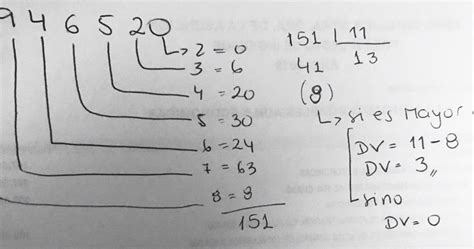 9 4 6 5 2 0
2 = 0
3 = 6
4 = 20
5 = 30
6 = 24
7 = 63
8 = 8
151
151 | 11
41 13
(8)
si es Mayor.
DV = 11 - 8
DV = 3,,
sino
DV = 0